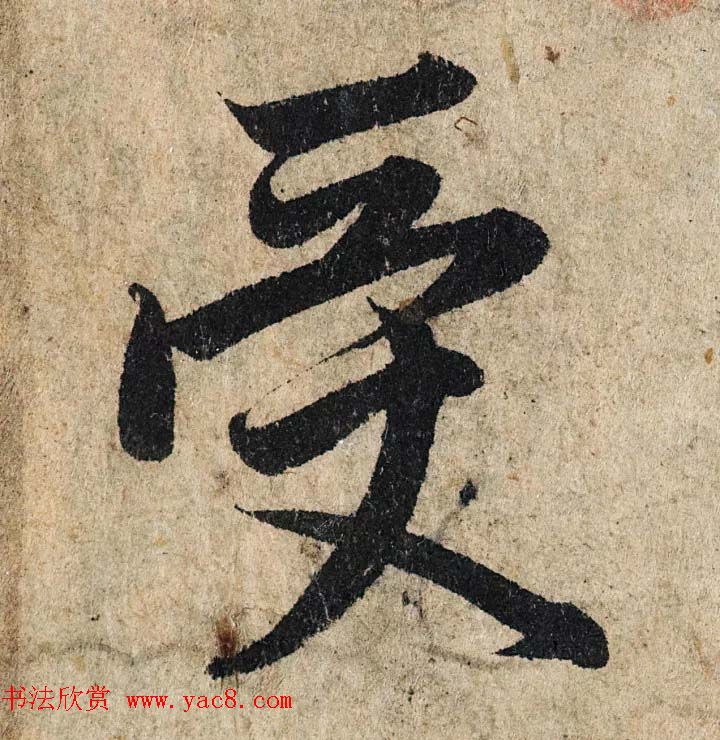 受
书法欣赏 www.yac8.com